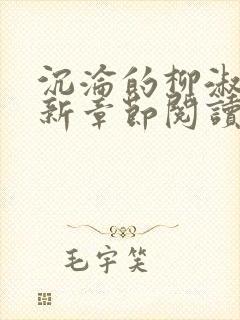 沉淪的柳淑
新章節閱讀
毛宇笑